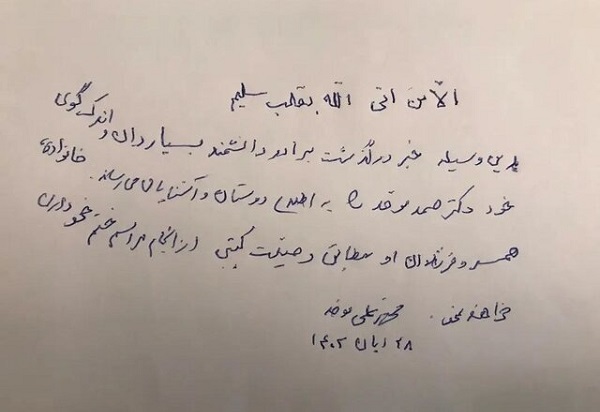 الّا من اتی اللّه بقلب سلیم
بدین وسیله خبر درگذشت برادر دانشمند بسیاردان و اندک گوی
خود دکتر صمد موحد را به اطلاع دوستان و آشنایان می رساند. خانواده،
همسر و فرزندان او مطابق وصیّت کتبی از انجام مراسم ختم خودداری
خواهند محمدعلی موحد
۲۸ آبان ۱۴۰۲